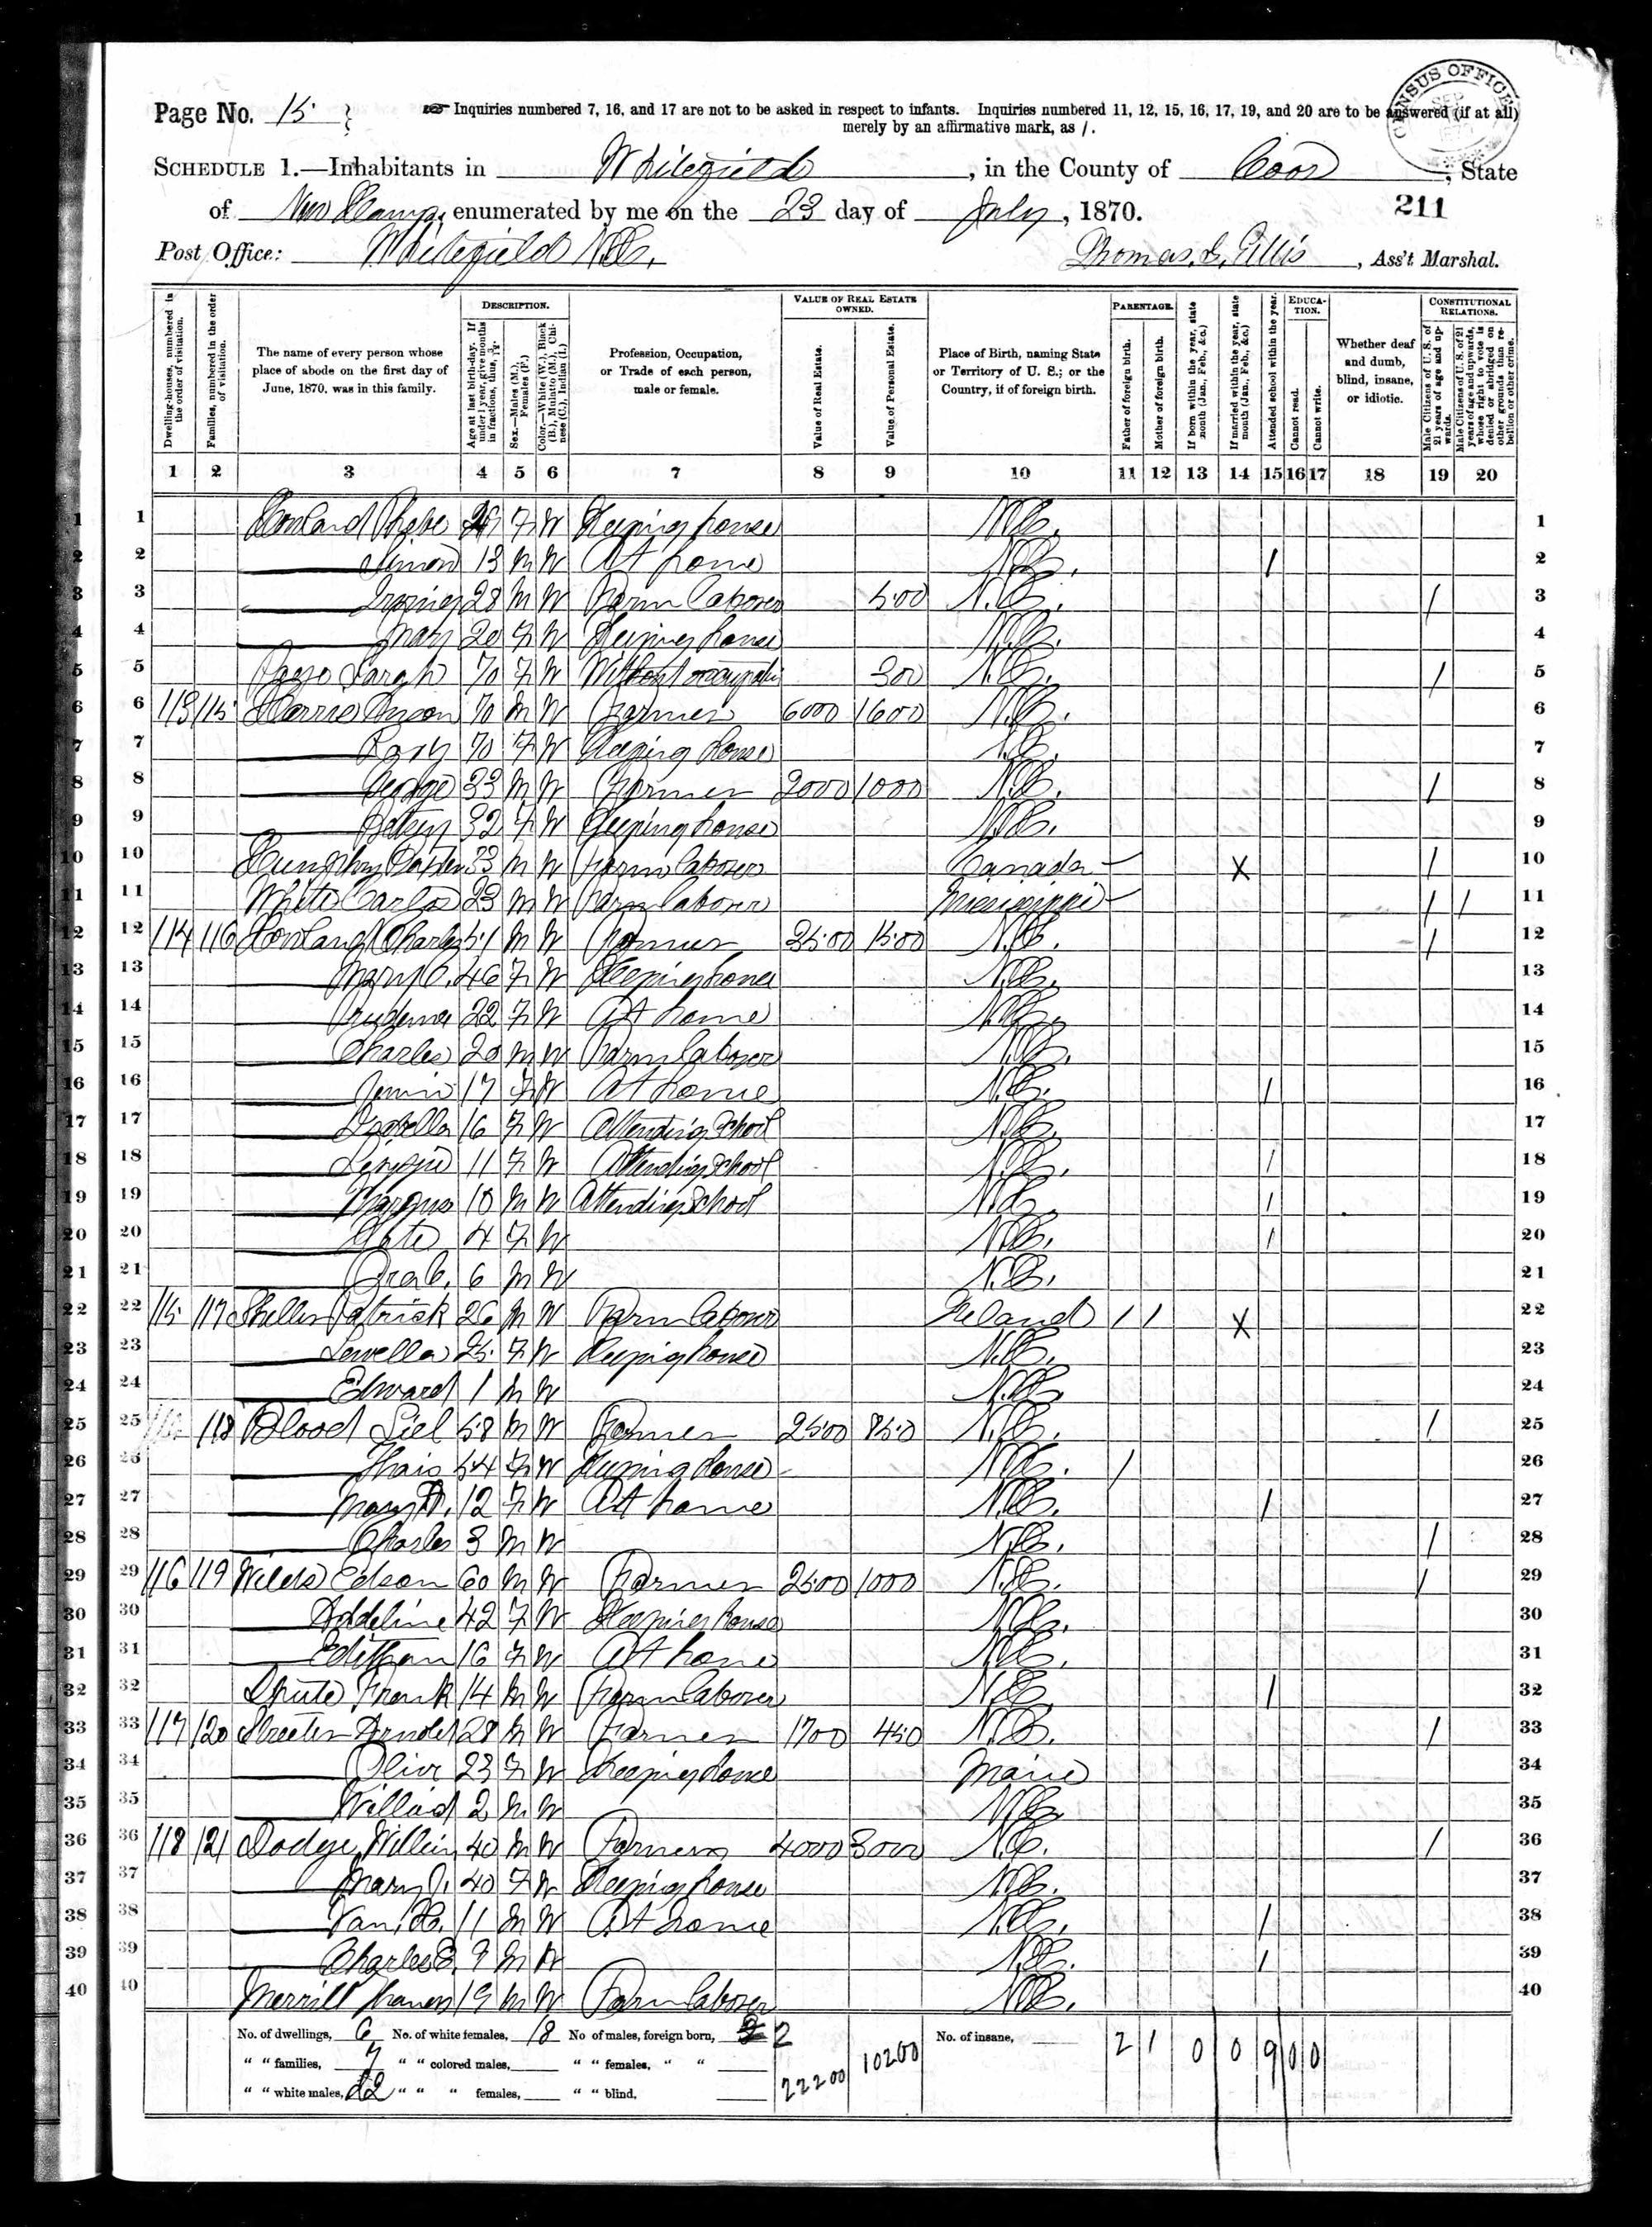 Page No. 15
Inquiries numbered 7, 16, and 17 are not to be asked in respect to infants. Inquiries numbered 11, 12, 15, 16, 17, 19, and 20 are to be answered (if at all)
merely by an affirmative mark, as /.
CENSUS OFFICE
SCHEDULE 1.—Inhabitants in Whitefield, in the County of Coos, State
of New Hamp, enumerated by me on the 23 day of July, 1870.
211
Post Office: Whitefield N.H.
Thomas Ellis, Ass't Marshal.
Dwelling-houses, numbered in the order of visitation.
Families, numbered in the order of visitation.
The name of every person whose place of abode on the first day of June, 1870, was in this family.
DESCRIPTION.
Age at last birth-day. If under 1 year, give months in fractions, thus, 3/12.
Sex.—Males (M.), Females (F.)
Color.—White (W.), Black (B.), Mulatto (M.), Chinese (C.), Indian (I.)
Profession, Occupation, or Trade of each person, male or female.
VALUE OF REAL ESTATE OWNED.
Value of Real Estate.
Value of Personal Estate.
Place of Birth, naming State or Territory of U. S.; or the Country, if of foreign birth.
PARENTAGE.
Father of foreign birth.
Mother of foreign birth.
If born within the year, state month (Jan., Feb., &c.)
If married within the year, state month (Jan., Feb., &c.)
Attended school within the year.
EDUCATION.
Cannot read.
Cannot write.
Whether deaf and dumb, blind, insane, or idiotic.
CONSTITUTIONAL RELATIONS.
Male Citizens of U. S. of 21 years of age and upwards.
Male Citizens of U. S. of 21 years of age and upwards, whose right to vote is denied or abridged on other grounds than rebellion or other crime.
1 2 3 4 5 6 7 8 9 10 11 12 13 14 15 16 17 18 19 20
1 Howland Phebe F W Keeping house N.H. 1
2 Simon 13 M W At home N.H. / 2
3 28 M W Farm laborer 500 N.H. / 3
4 Mary 20 F W Keeping house N.H. 4
5 Sarah 70 F W Without occupati 300 N.H. / 5
6 113 115 70 M W Farmer 6000 1600 N.H. 6
7 70 F W Keeping house N.H. 7
8 George 33 M W Farmer 2000 1000 N.H. / 8
9 Betsey 32 F W Keeping house N.H. 9
10 Humphrey 33 M W Farm laborer Canada X / 10
11 White Carlos 23 M W Farm laborer Mississippi / / 11
12 114 116 Howland Charles 51 M W Farmer 2500 1500 N.H. / 12
13 Mary 46 F W Keeping house N.H. 13
14 Prudence 22 F W At home N.H. 14
15 Charles 20 M W Farm laborer N.H. 15
16 17 F W At home N.H. / 16
17 Isabella 16 F W Attending School N.H. 17
18 11 F W Attending School N.H. / 18
19 10 M W Attending School N.H. / 19
20 4 F W N.H. / 20
21 6 M W N.H. 21
22 115 117 Patrick 26 M W Farm laborer Ireland / / X 22
23 Lewella 25 F W Keeping house N.H. 23
24 Edward 1 M W N.H. 24
25 118 Blood 58 M W Farmer 2500 850 N.H. / 25
26 54 F W Keeping house N.H. / 26
27 Mary 12 F W At home N.H. / 27
28 Charles 3 M W N.H. / 28
29 116 119 Edson 60 M W Farmer 2500 1000 N.H. / 29
30 Addeline 42 F W Keeping house N.H. 30
31 16 F W At home N.H. 31
32 Frank 14 M W Farm laborer N.H. / 32
33 117 120 Streeter 28 M W Farmer 1700 450 N.H. / 33
34 Olive 23 F W Keeping house Maine 34
35 2 M W N.H. 35
36 118 121 Dodge 40 M W Farmer 4000 3000 N.H. / 36
37 Mary J. 40 F W Keeping house N.H. 37
38 Van. H. 11 M W At home N.H. / 38
39 Charles E. 9 M W N.H. / 39
40 Merrill 19 M W Farm laborer N.H. 40
No. of dwellings, 6 No. of white females, 18 No of males, foreign born, 2 No. of insane,
" " families, 7 " " colored males, " " females, " "
" " white males, 22 " " " females, " " blind,
22200 10200 2 1 0 0 9 0 0